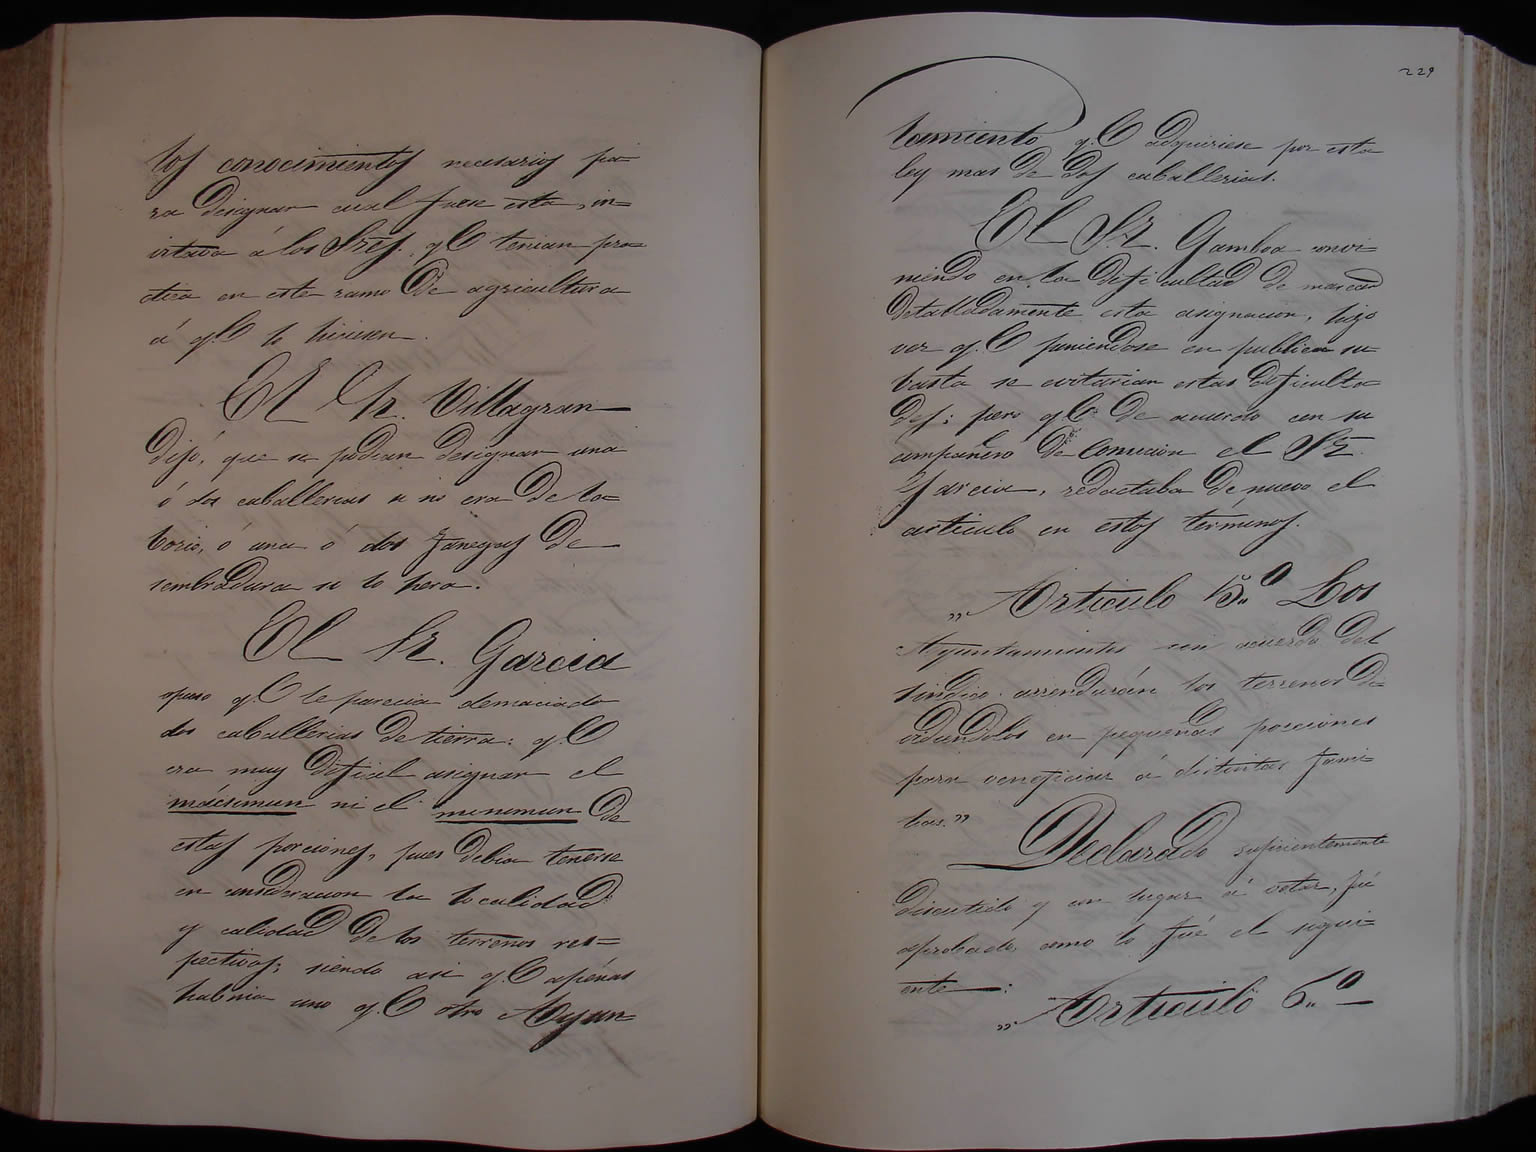 los conocimientos necesarios pa-
ra designar cual fuese esta, in-
vitava á los Sres. q.e tenian pra-
ctica en este ramo de agricultura
á q.e lo hiciesen.
El Sr. Villagran
dijo, que se podian designar una
ó dos caballerias si no era de la-
borio, ó una ó dos fanegas de
sembradura si lo hera.
El Sr. Garcia
opuso q.e le parecia demaciado
dos caballerias de tierra: q.e
era muy dificil asignar el
mácsimun ni el minimun de
estas porciones, pues debia tenerse
en consideracion la localidad
y calidad de los terrenos res-
pectivos; siendo asi q.e apénas
habria uno q.e otro Ayun-
229
tamiento q.e adquiriese por esta
ley mas de dos caballerias.
El Sr. Gamboa convi-
niendo en la dificultad de marcar
detalladamente esta asignacion, hizo
ver q.e poniendose en publica su-
basta se evitarian estas dificulta-
des; pero q.e de acuerdo con su
compañero de comicion el Sr.
Garcia, redactaba de nuevo el
articulo en estos términos.
"Articulo 5.º Los
Ayuntamientos con acuerdo del
sindico arrendarán los terrenos di-
vidiendolos en pequeñas porciones
para veneficiar á distintas fami-
lias."
Declarado suficientemente
discutido y con lugar á votar, fué
aprobado, como lo fué el sigui-
ente:
"Articulo 6.º